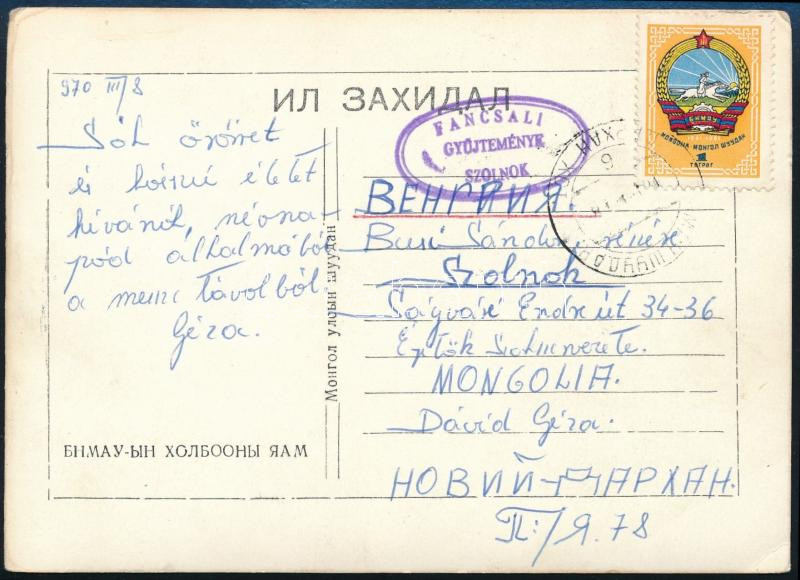 970 III/8
ИЛ ЗАХИДАЛ
Sok örömet
és hosszú életet
kívánok, névna-
pod alkalmából
a messzi távolból.
Géza.
FANCSALI
GYŰJTEMÉNYK
SZOLNOK
БНМАУ
МОНГОЛ ШУУДАН
1
ТӨГРӨГ
ВЕНГРИЯ.
Busi Sándor részére
Szolnok
Ságvári Endre út 34-36
Építők
MONGOLIA.
Dávid Géza.
НОВИЙ-ДАРХАН.
П:/Я.78
Монгол улсын шуудан
БНМАУ-ЫН ХОЛБООНЫ ЯАМ